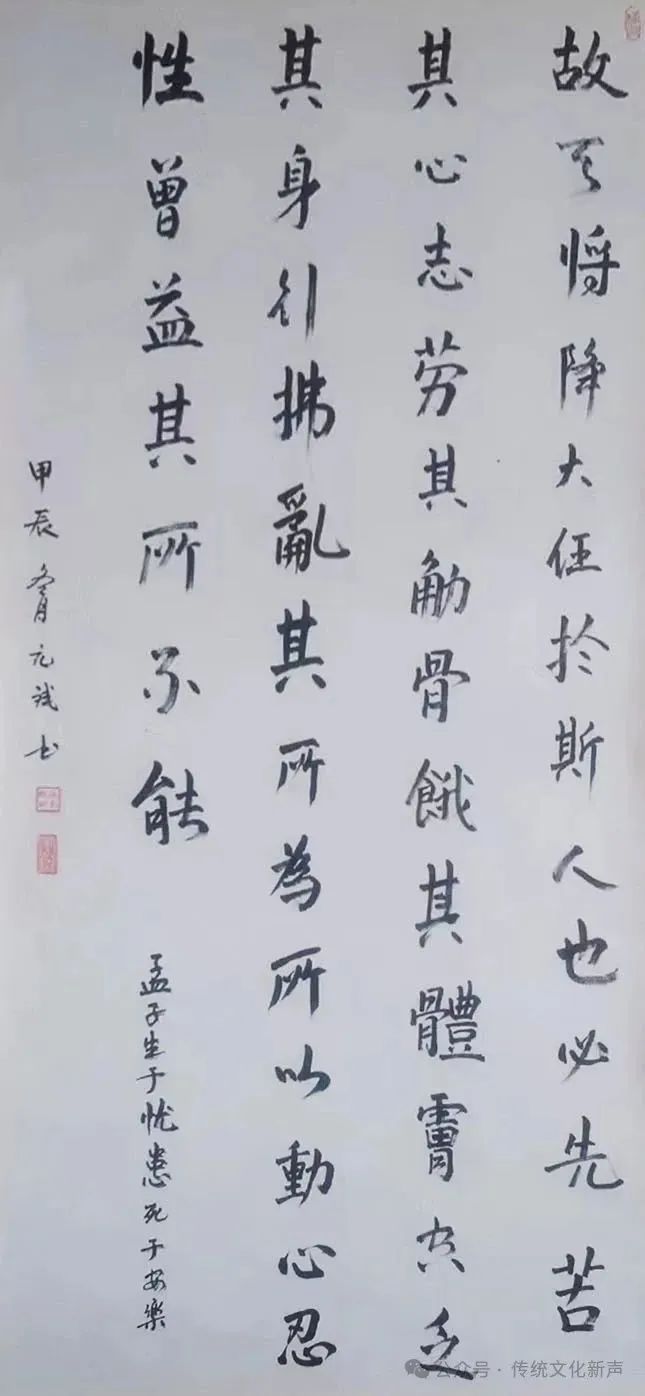 故天将降大任於斯人也必先苦
其心志劳其觔骨餓其體膚空乏
其身行拂亂其所為所以動心忍
性曾益其所不能
孟子生于忧患死于安樂
甲辰冬月元诚书
公众号·传统文化新声